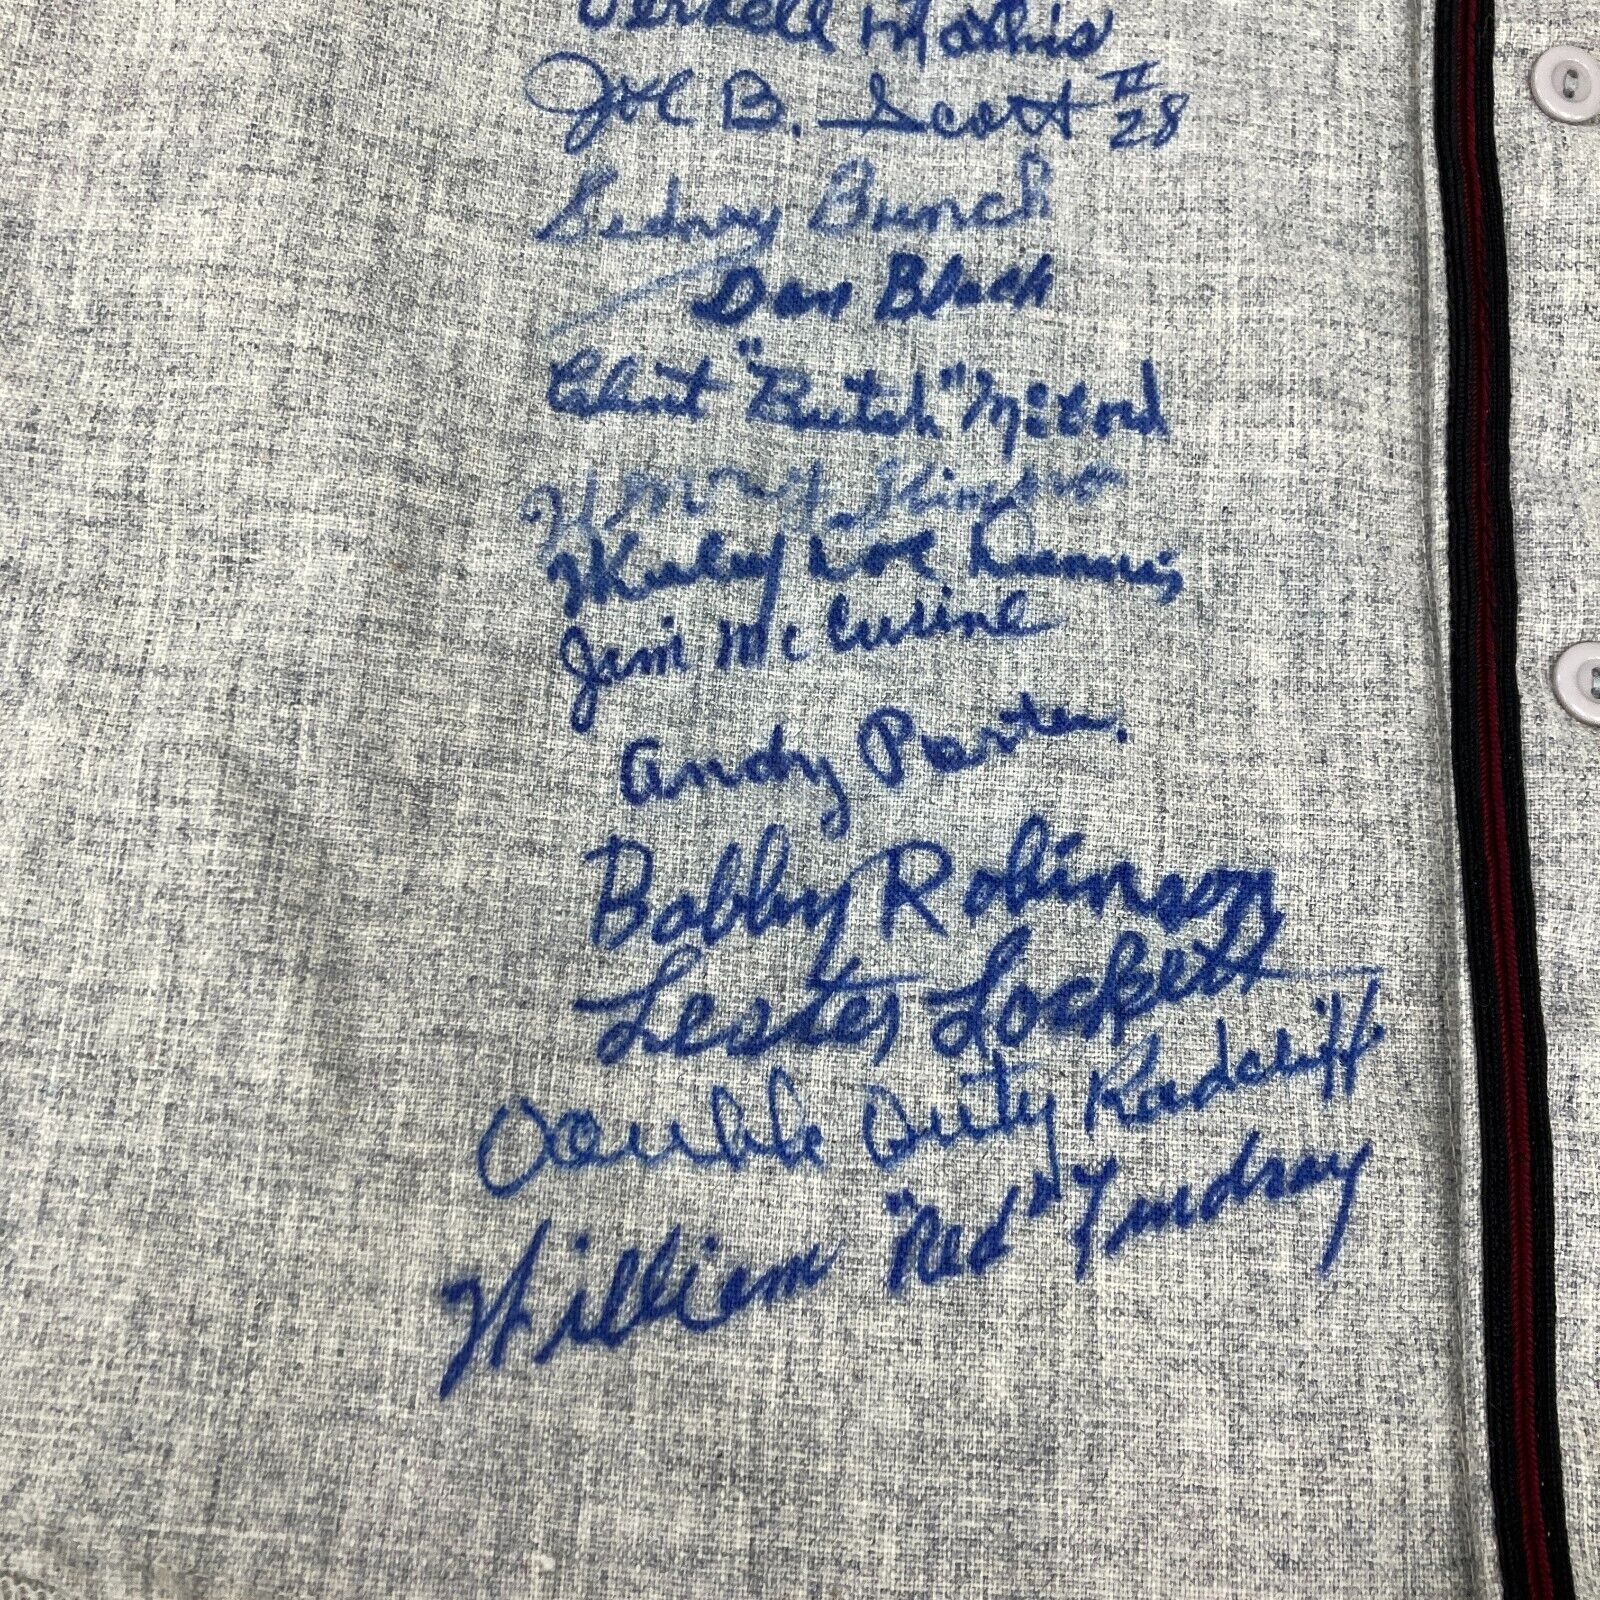 Verdell Mathis
Joe B. Scott II
28
Sidney Bunch
Dan Black
Clint "Butch" McCord
Henry Kimbro
Wesley Lou Dennis
Jim McCurine
Andy Porter.
Bobby Robinson
Lester Lockett
Double Duty Radcliff
William "Red" Lindsay